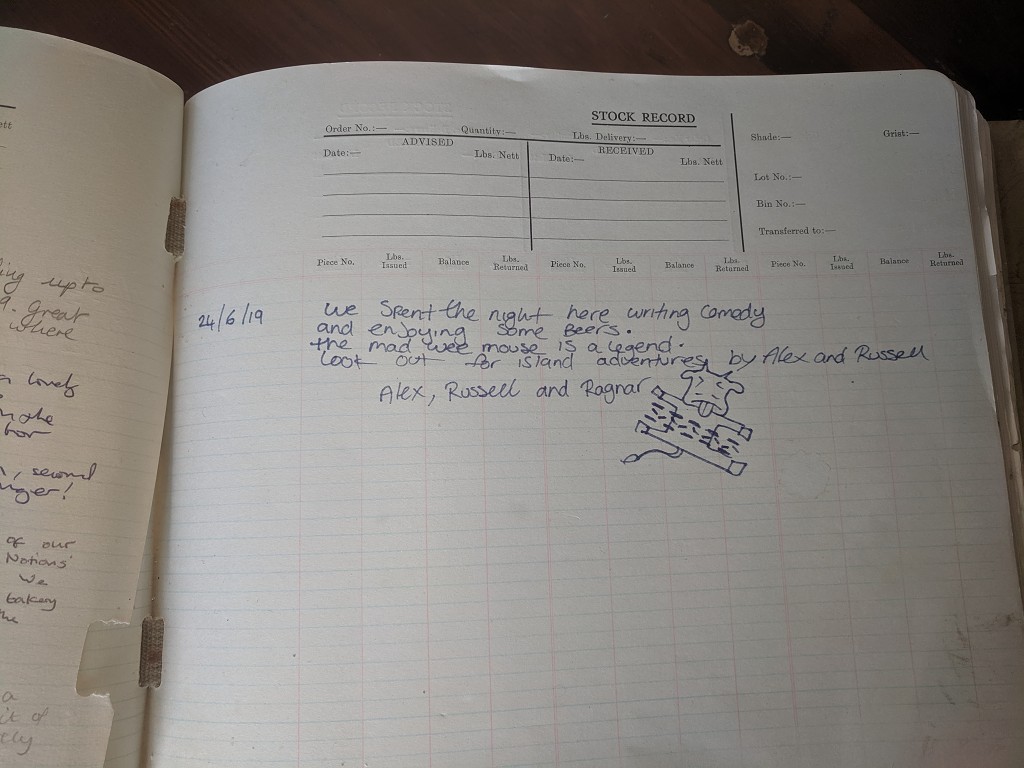 ett
ing upto
9. Great
where
lovely
, second
of our
Notions'
We
bakery
the
a
it of
STOCK RECORD
Order No.:— Quantity:— Lbs. Delivery:—
ADVISED RECEIVED
Date:— Lbs. Nett Date:— Lbs. Nett
Shade:— Grist:—
Lot No.:—
Bin No.:—
Transferred to:—
Piece No. Lbs. Issued Balance Lbs. Returned Piece No. Lbs. Issued Balance Lbs. Returned Piece No. Lbs. Issued Balance Lbs. Returned
24/6/19 We Spent the night here writing Comedy
and enjoying some Beers.
the mad wee mouse is a legend.
Look out for island adventures, by Alex and Russell
Alex, Russell and Ragnar